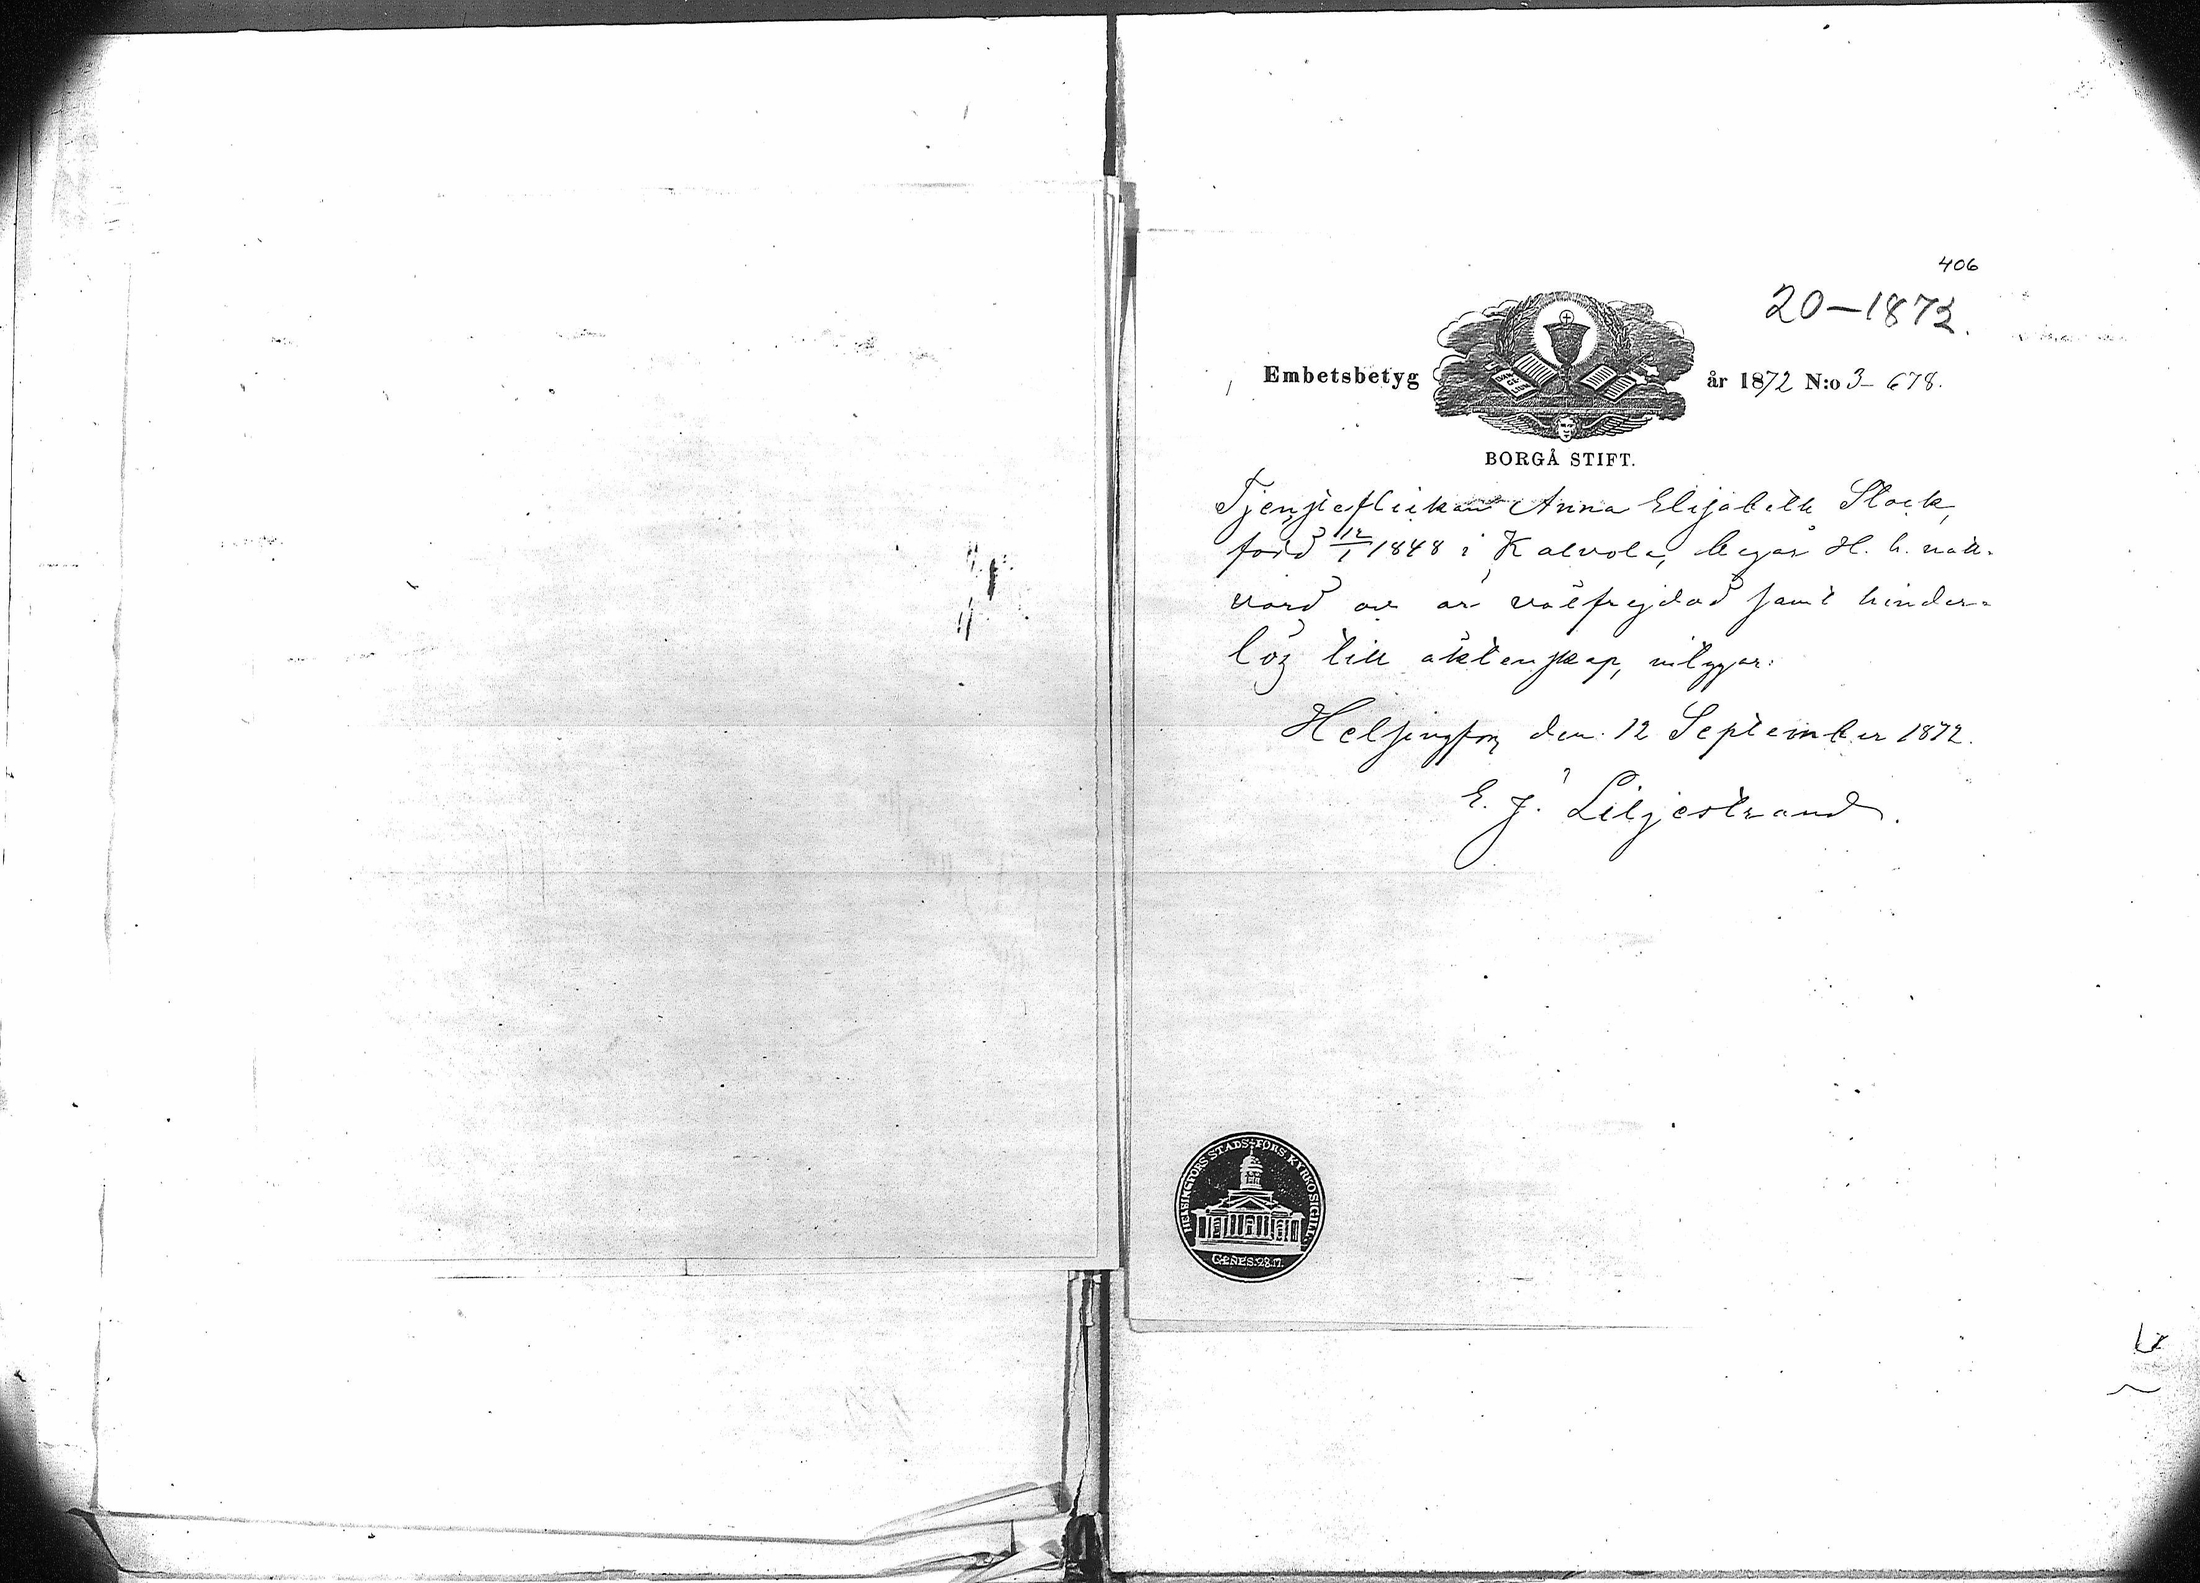 406
20-1872.
Embetsbetyg år 1872 N:o 3- 678.
BORGÅ STIFT.
Tjensteflickan Anna Elisabeth Stock,
född 12/1 1848 i Kalvola, begår H. h. natt-
vard och är välfrejdad samt hinder-
lös till äktenskap, intygar:
Helsingfors den 12 September 1872.
E. J. Liljestrand.
HELSINGFORS STADS FÖRS. KYRKOSIGILL.
GENES. 28.17.